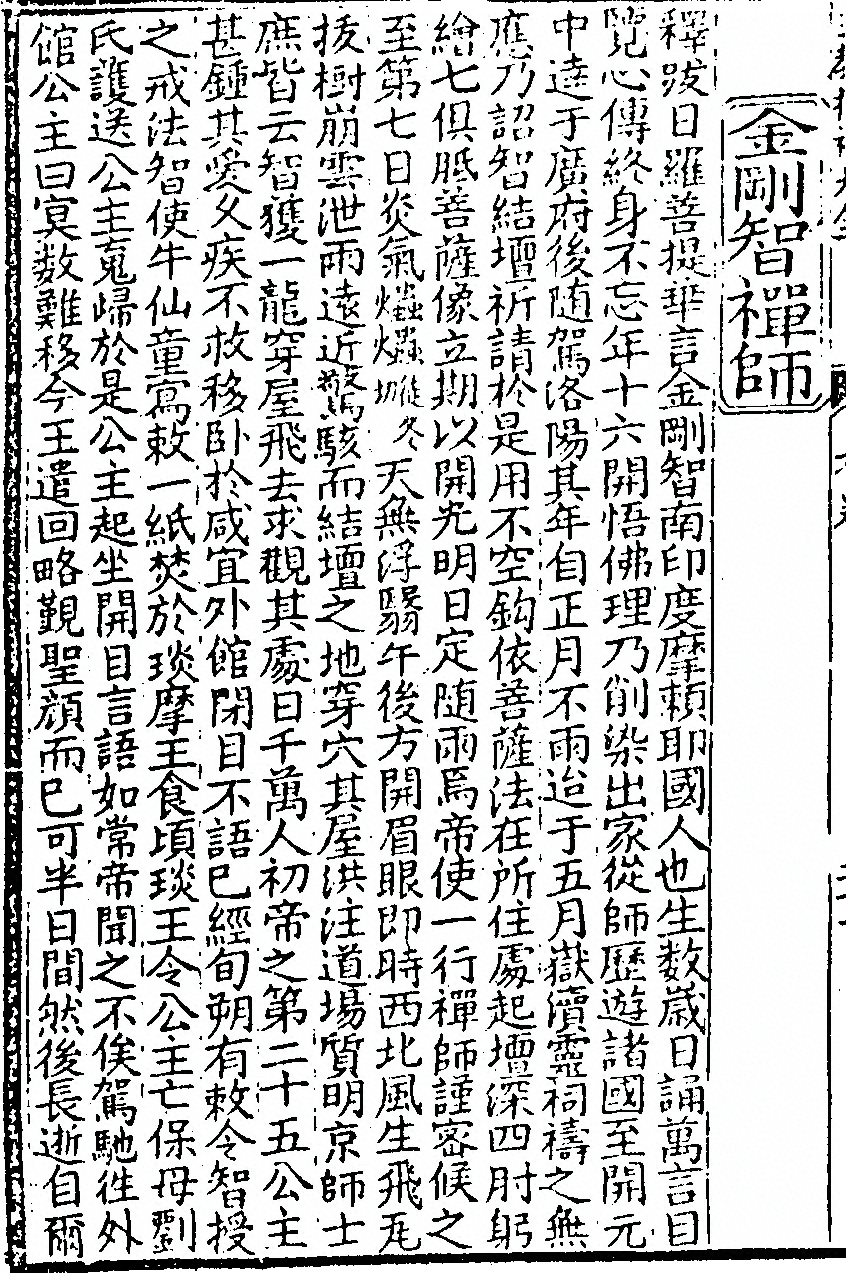 金剛智禪師
釋跋日羅菩提華言金剛智南印度摩頼耶國人也生数歲日誦萬言目
覽心傳終身不忘年十六開悟佛理乃削染出家從師歷遊諸國至開元
中逹于廣府後随駕洛陽其年自正月不雨迨于五月嶽瀆靈祠禱之無
應乃詔智結壇祈請於是用不空鈎依菩薩法在所住處起壇深四肘躬
繪七俱胝菩薩像立期以開光明日定随雨焉帝使一行禪師謹宻候之
至第七日炎氣爞爞 天無浮翳午後方開眉眼即時西北風生飛瓦
拔樹崩雲泄雨遠近驚駭而結壇之地穿穴其屋洪注道場質明京師士
庶皆云智獲一龍穿屋飛去求觀其處日千萬人初帝之第二十五公主
甚鍾其愛久疾不救移卧於咸宜外館閉目不語巳經旬朔有敕令智授
之戒法智使牛仙童寫敕一紙焚於琰摩王食頃琰王令公主亡保母劉
氏護送公主䰟歸於是公主起坐開目言語如常帝聞之不俟駕馳往外
館公主曰㝠数難移今王遣回略覲聖顔而巳可半日間然後長逝自爾